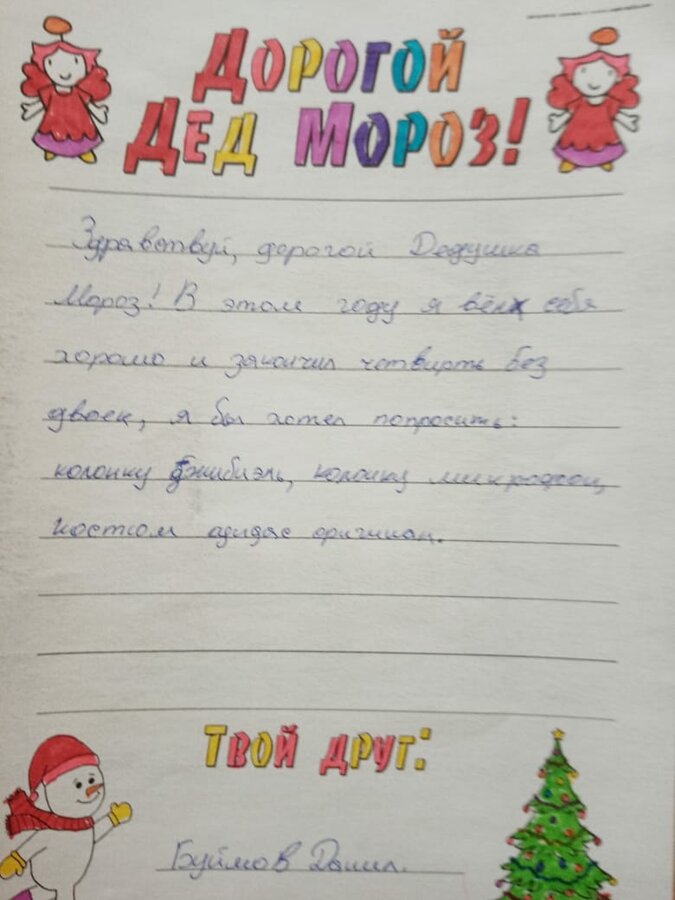 ДОРОГОЙ
ДЕД МОРОЗ!
Здравствуй, дорогой Дедушка
Мороз! В этом году я вёл себя
хорошо и закончил четвирть без
двоек, я бы хотел попросить:
колонку джибиэль, колонку микрофон,
костюм адидас оригинал.
ТВОЙ ДРУГ:
Буймов Данил.